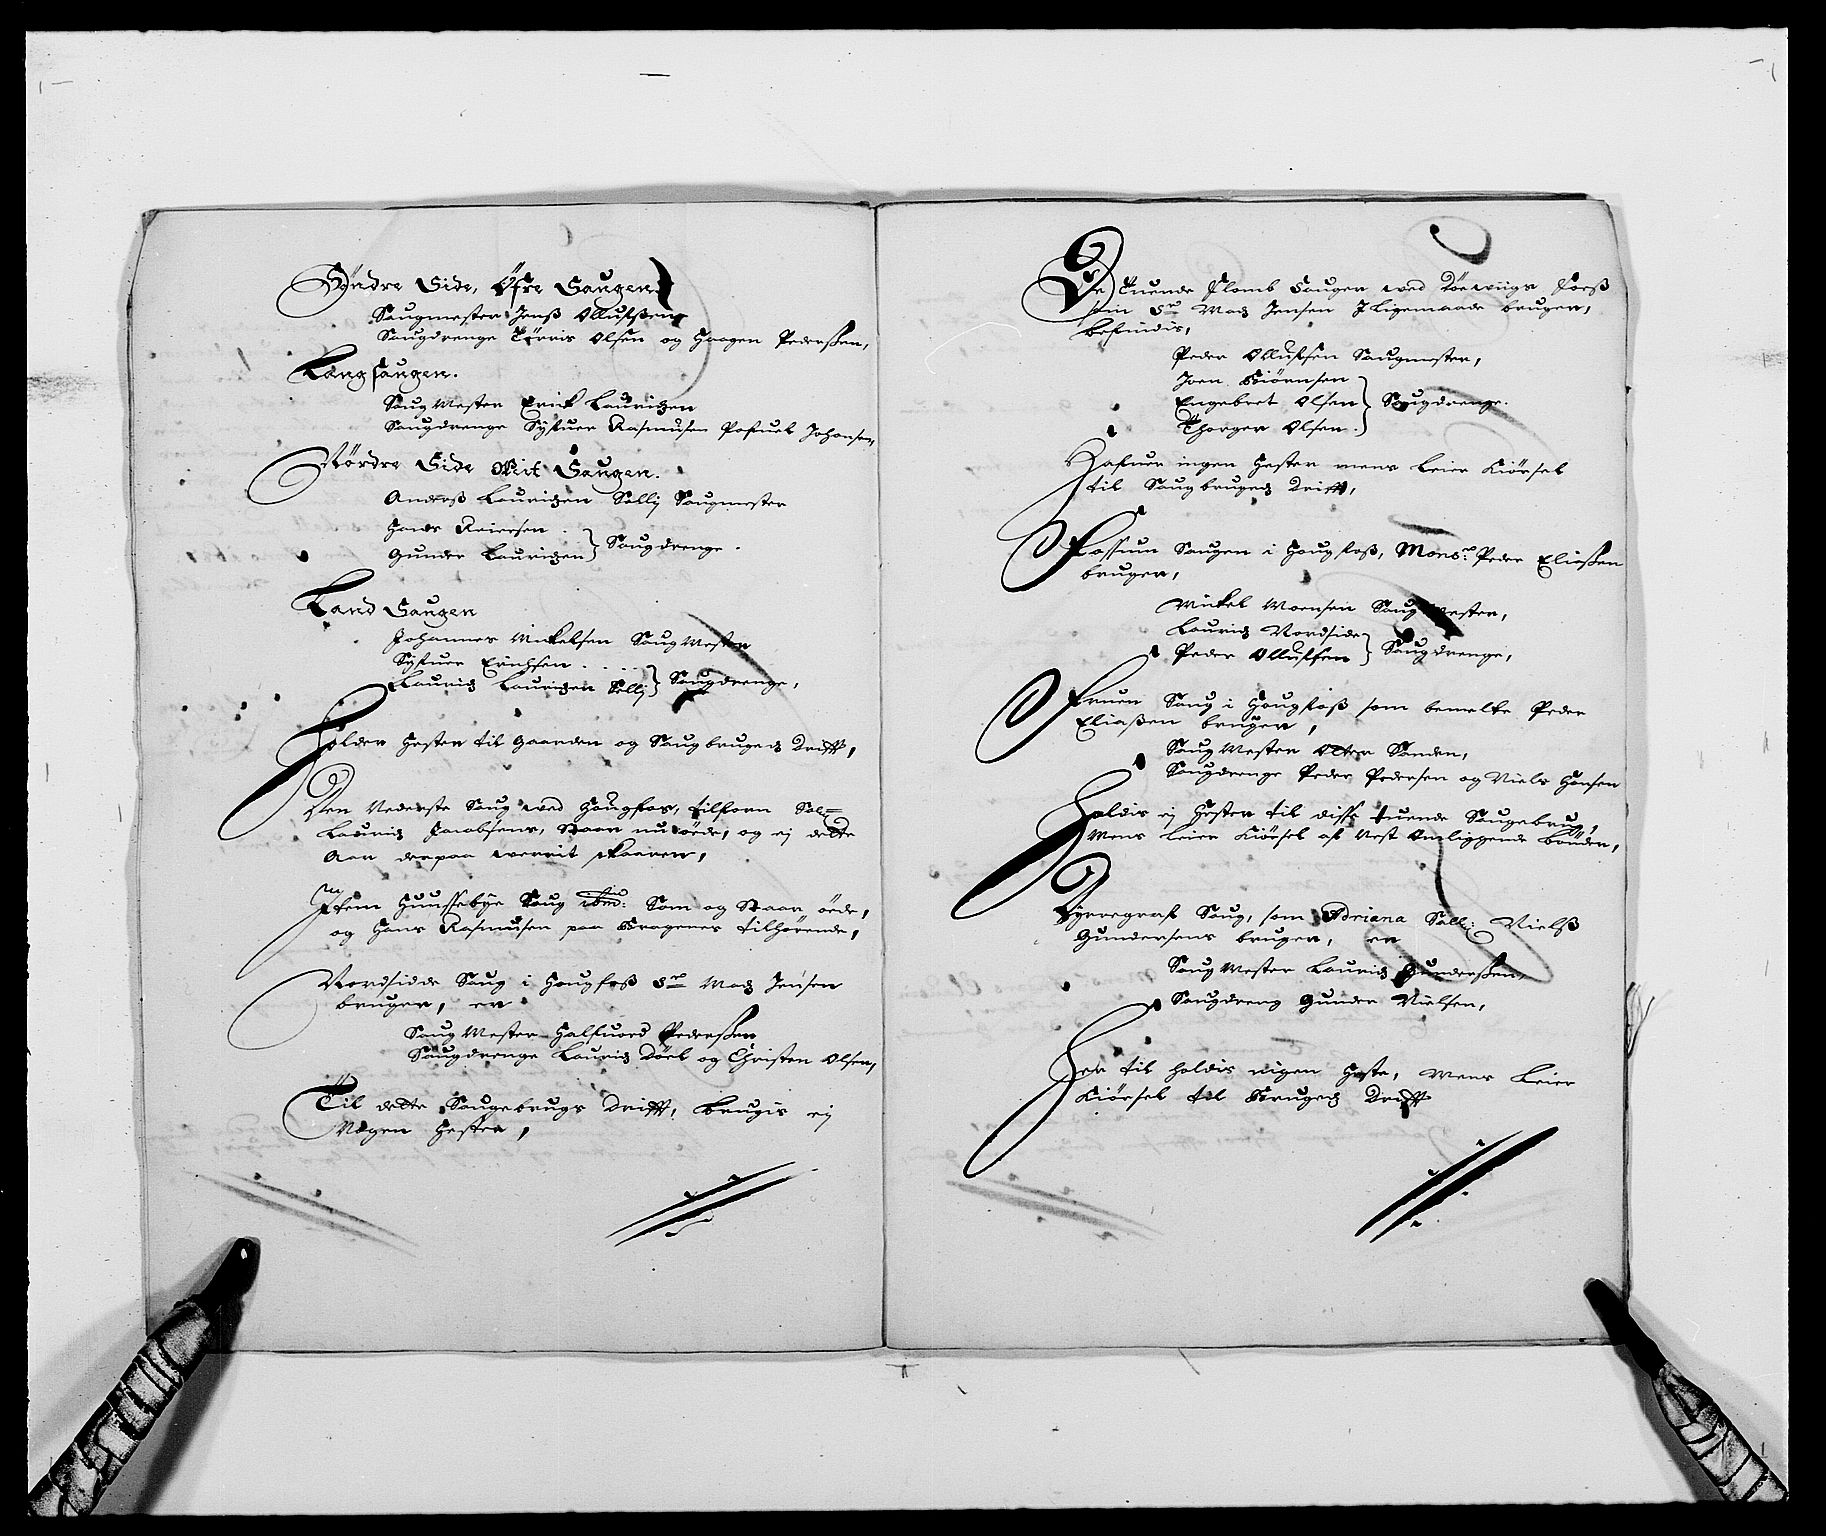 Søndre Side, Öfre Saugen
Saugmester Jenß Olluфßen
Saugdrenge Törris Olsen og Haagen Pederßen,
Langsaugen.
Saug Mester Erick Lauritzen
Saugdrenge Syfuer Rasmusen Pofuel Johansen,
Nørdre Side Mit Saugen.
Anderß Lauritzen Sollj Saugmester
Hans Reiersen .
Gunder Lauritzen } Saugdrenge.
Land Saugen
Johannes Mickelsen Saug Mester
Syfuer Erichsen . . . .
Lauritz Lauritzen Sollj } Saugdrenge,
Holder Hester til Gaarden og Saugbrugetz Drifft,
Den Nederste Saug wed Hougfos, tilforn Sal=
Lauritz Jacobsens, Staar nu öede, og ej dette
Aar derpaa werrit skaaren,
Jtem Hunssebye Saug ibnd: Som og Staar öede,
og Hans Rasmusen paa Bragenes tilhørende,
Nordsidde Saug i Hougfoß Sr Madz Jensen
bruger, er
Saug Mester Halfuord Pederßen
Saugdrenge Lauritz Döel og Christen Olsen,
Til dette Saugebrugs Drifft, brugis ej
Nogen Hester,
De Tuende Flomb Sauger wed Döewiigs Foeß
som Sr Madz Jensen Jligemaade bruger,
befindis,
Peder Ollufsen Saugmester,
Joen Biörnsen
Engebret Olsen } Saugdrenge.
Thorger Olsen .
Hafuer ingen Hester mens Leier Kiörsel
til Saugbrugetz Drifft,
Fossum Saugen i Hougfoß, Monsr: Peder Eliaßen
bruger,
Mickel Moensen Saug Mester,
Lauritz Nordside
Peder Ollufsen } Saugdrenge,
Fruen Saug i Hougfoß som bemelte Peder
Eliaßen bruger,
Saug Mester Otter Sanden,
Saugdrenge Peder Pedersen og Niels Hansen
Holdis ej Hester til disse tuende Saugebrug,
Mens leier Kiörsel af Nest Omliggende bönder,
Dyrregraf Saug, som Adriana Sall: Nielß
Gundersens bruger, er
Saug Mester Lauritz Gunderßen,
Saugdreng Gunder Nielsen,
Her til holdis ingen Heste, Mens Leier
Kiörsel til Brugetz Drifft